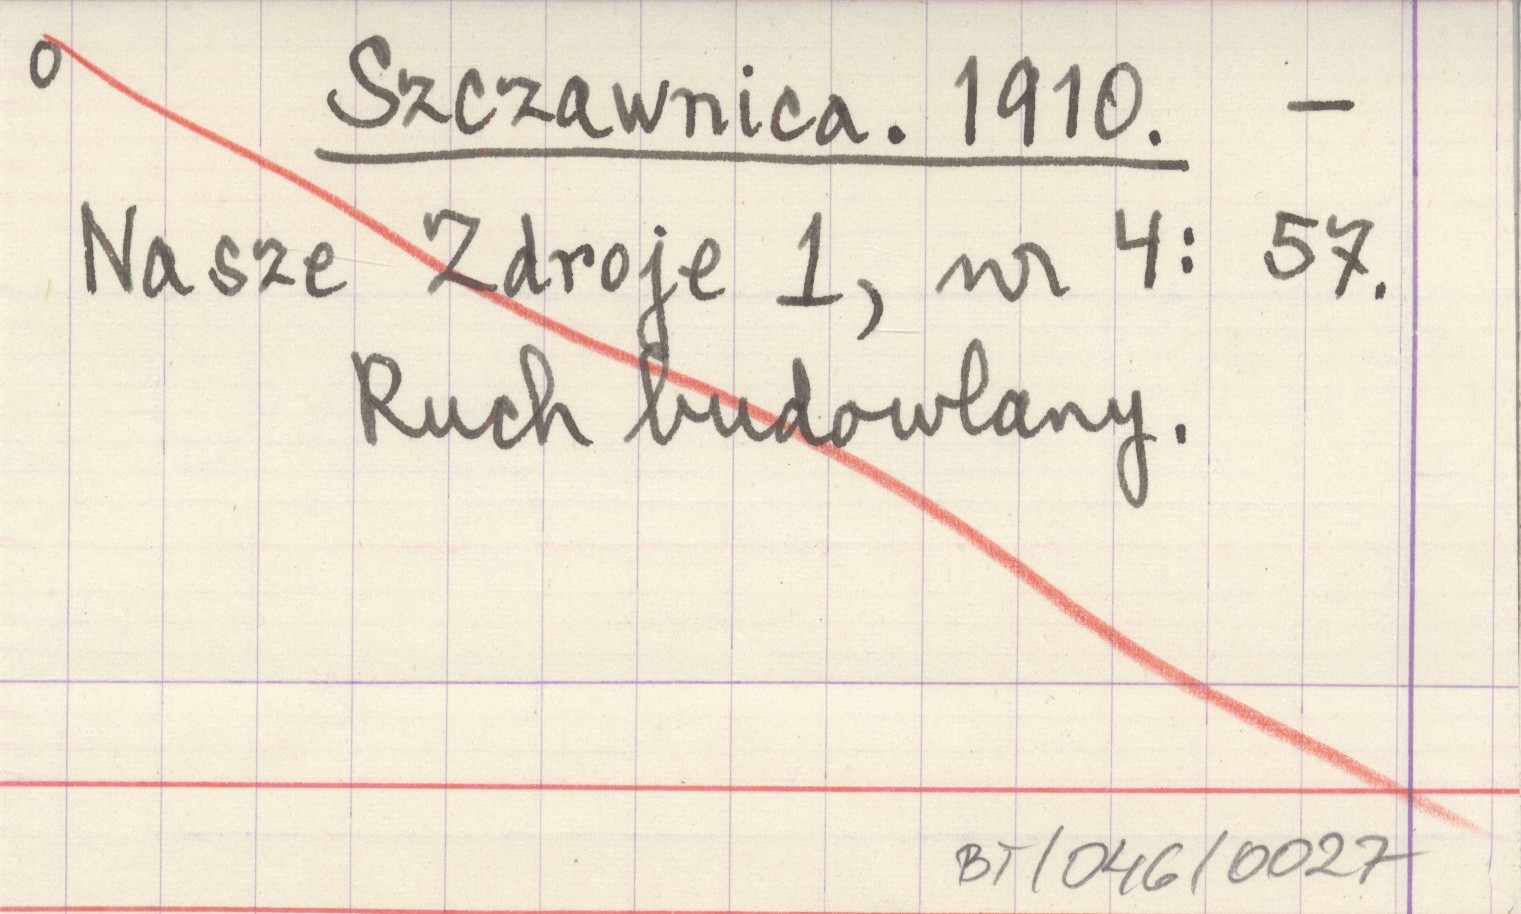 0
Szczawnica. 1910. —
Nasze Zdroje 1, nr 4: 57.
Ruch budowlany.
BT/046/0027